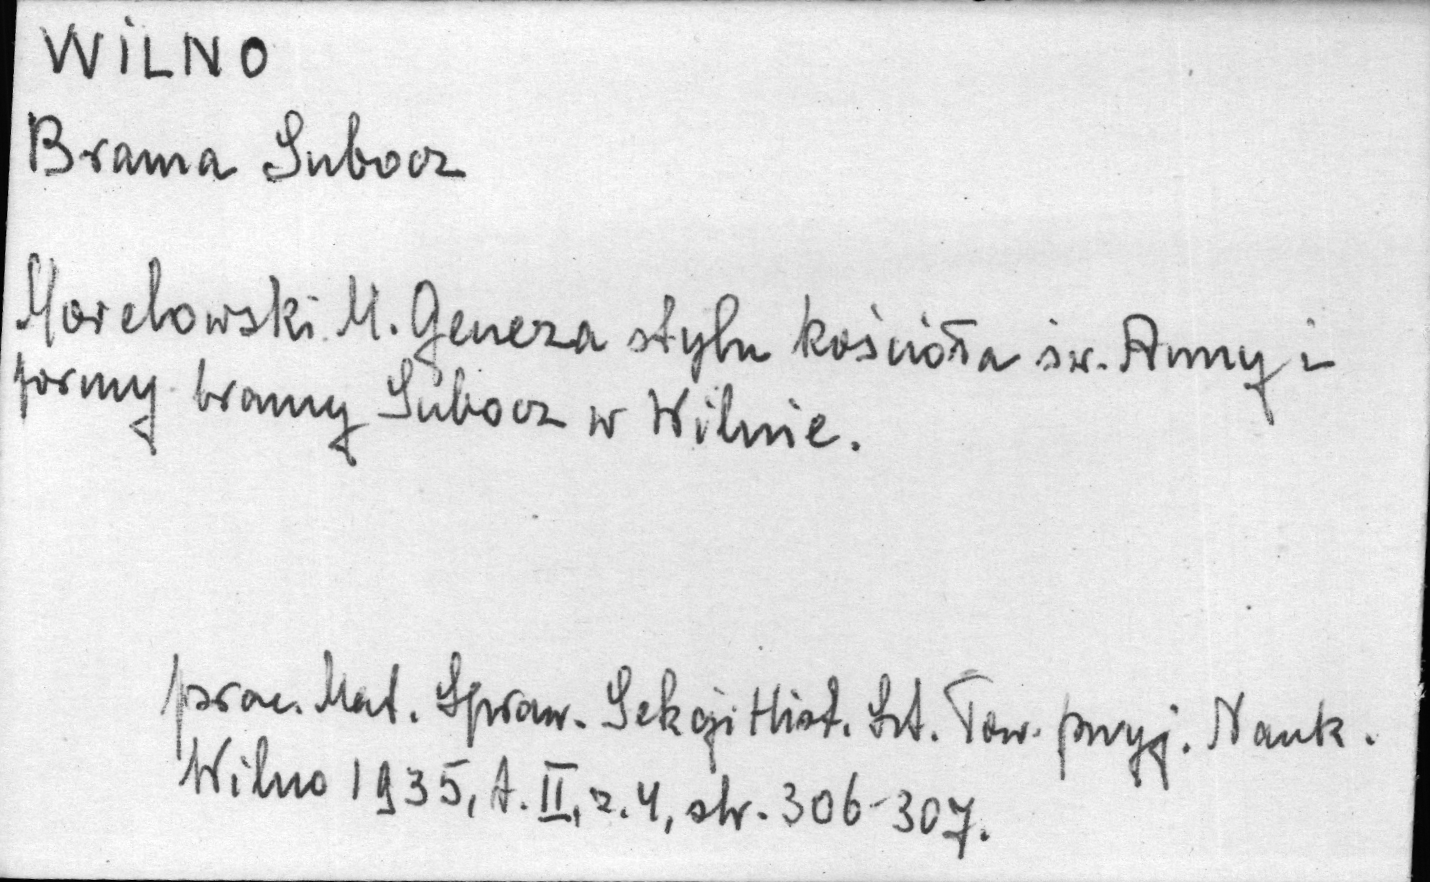 WILNO
Brama Subocz
Morelowski M. Geneza stylu kościoła św. Anny i
formy bramy Subocz w Wilnie.
prac. Mat. Spraw. Sekcji Hist. Szt. Tow. przyj. Nauk.
Wilno 1935, t. II, z. 4, str. 306-307.